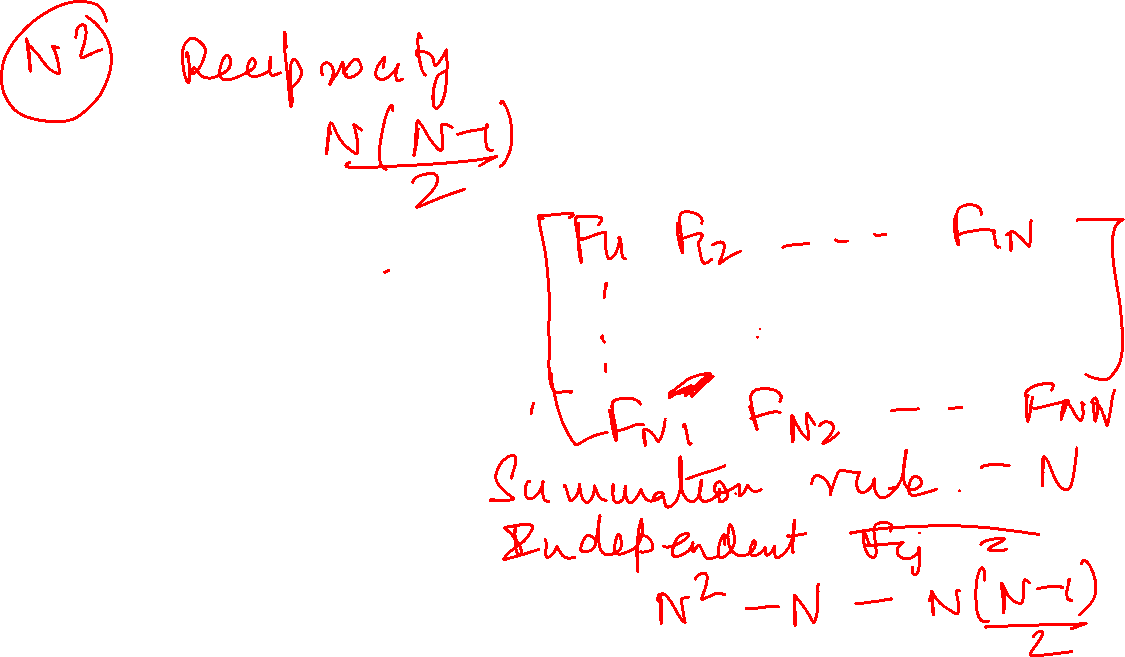 N² Reciprocity
N(N-1)
2
F11 F12 --- F1N
FN1 FN2 -- FNN
Summation rule. - N
Independent Fij =
N² - N - N(N-1)
2